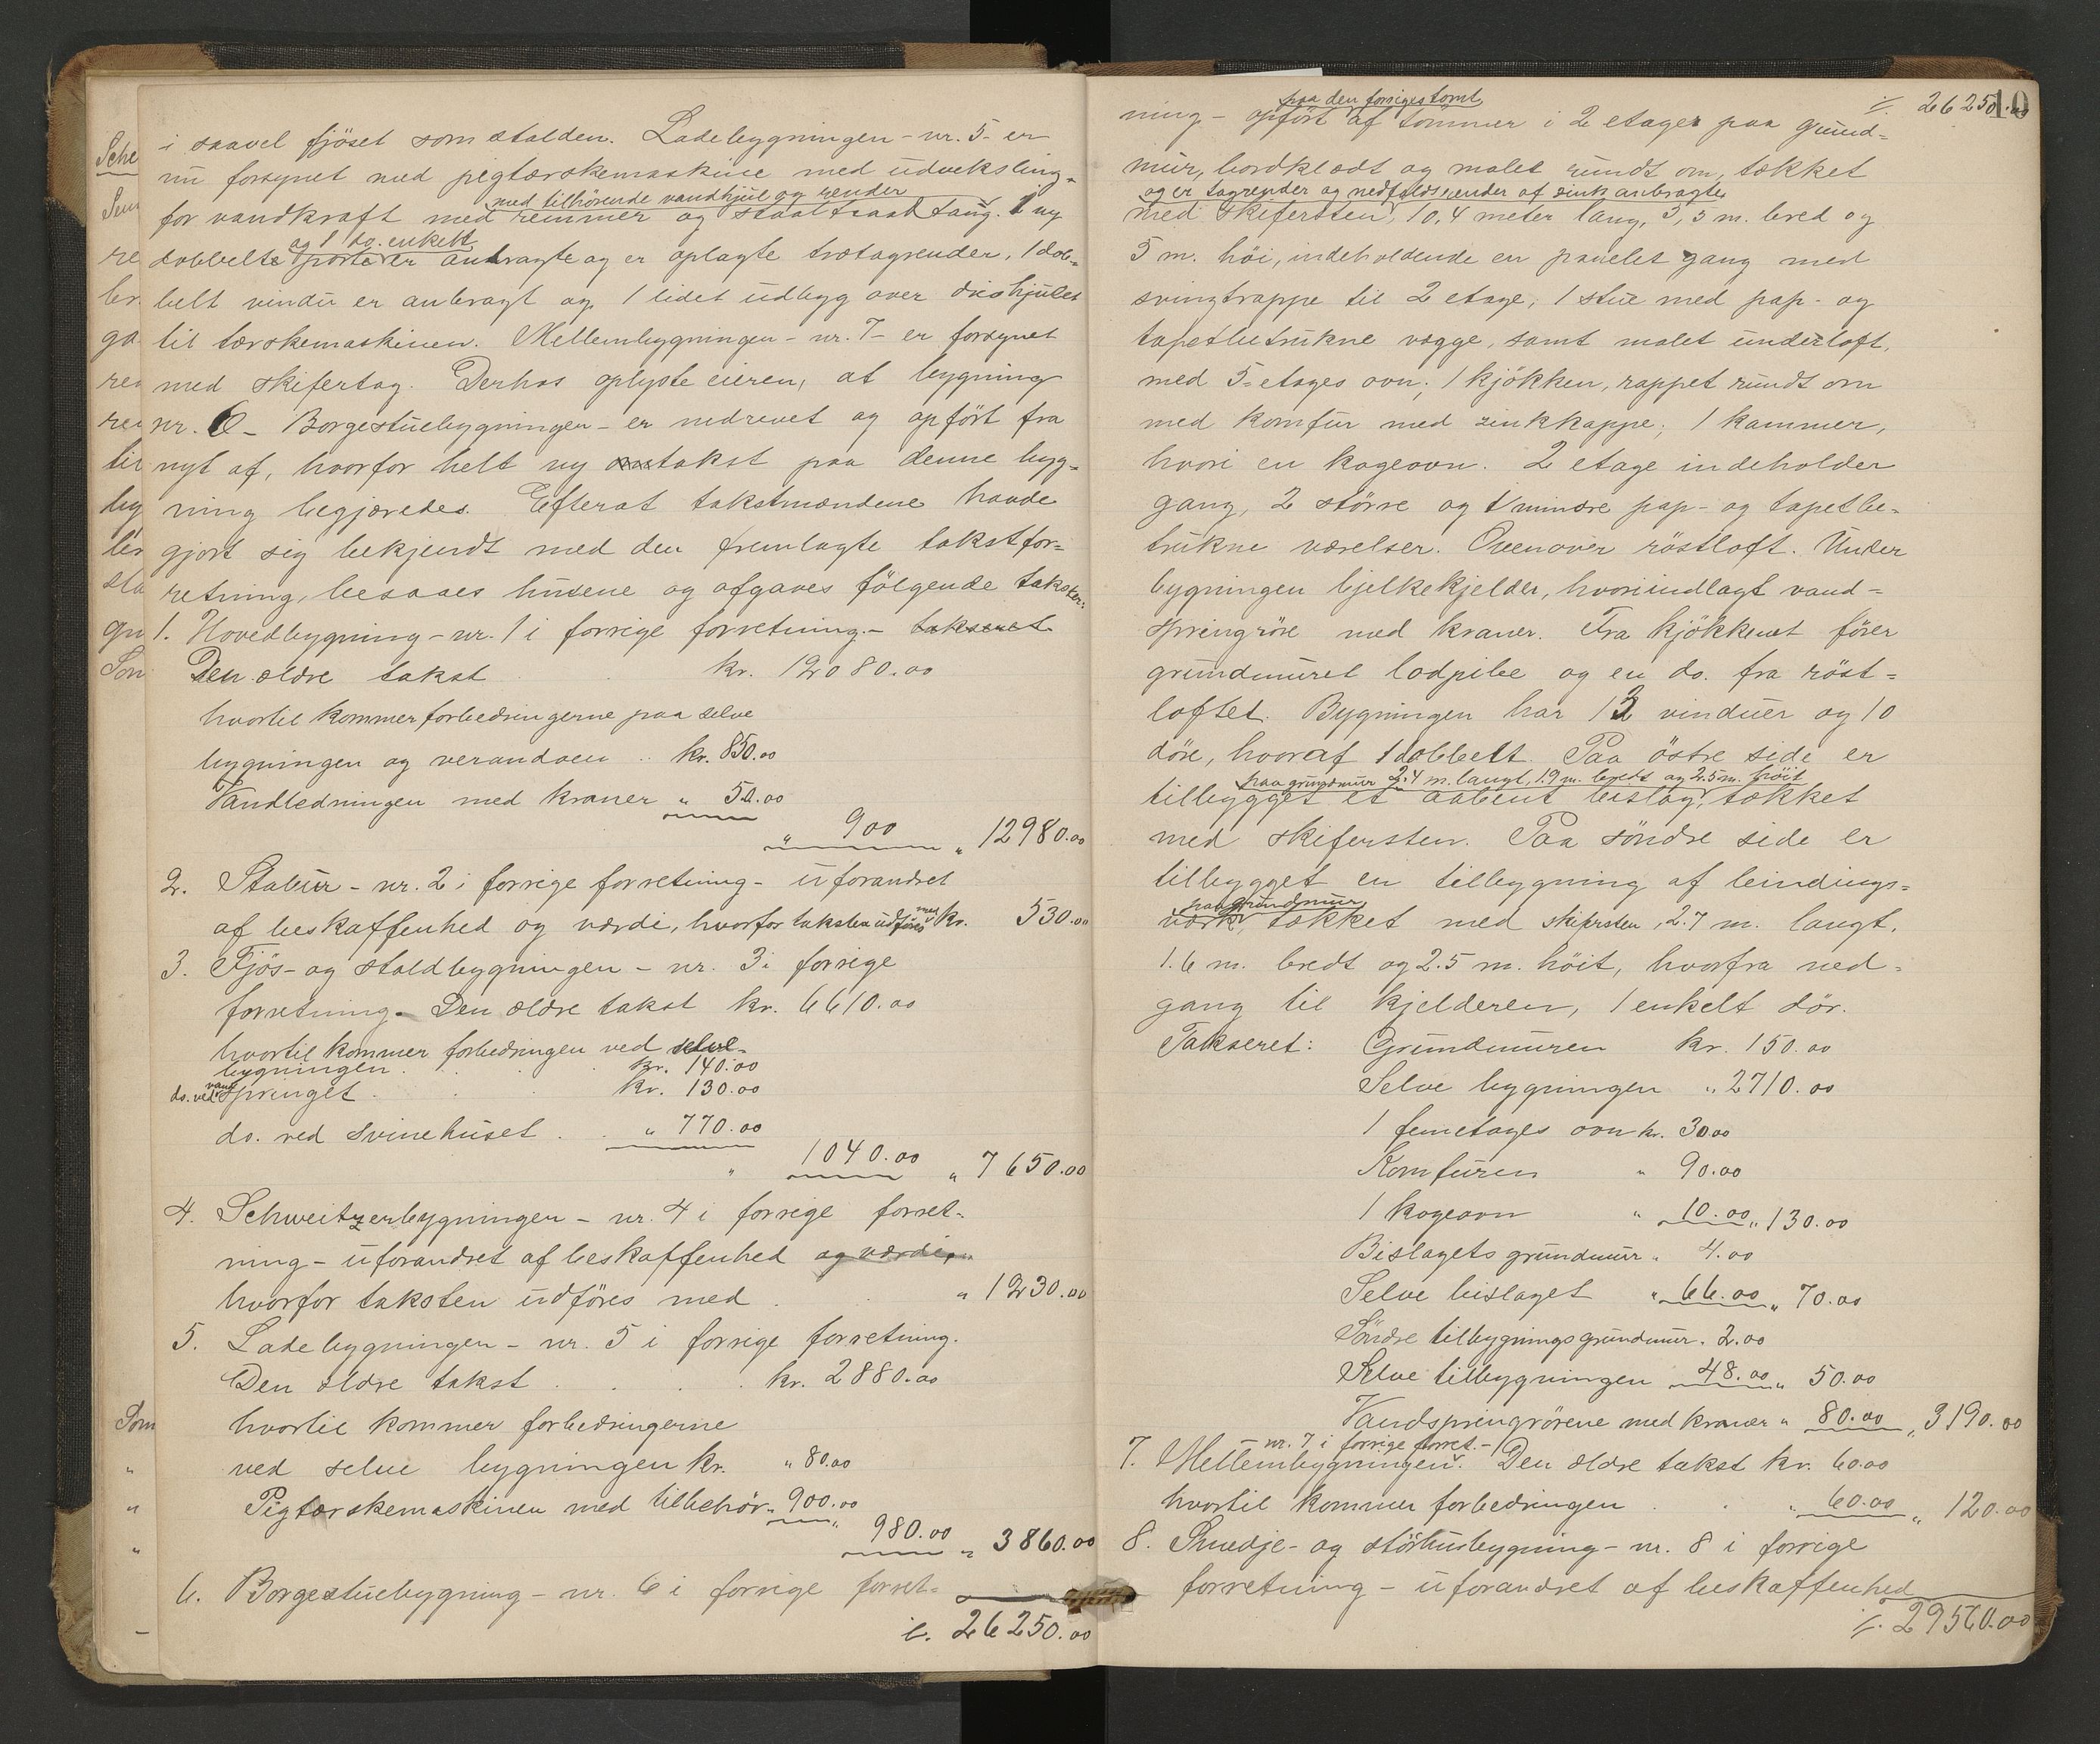 i saavel fjöset som stalden. Ladebygningen - nr. 5 - er
nu forsynet med pigtærskemaskine med udveksling
med tilhörende vandhjul og render
for vandkraft med remmer og staaltraadtaug. 1 ny
og 1 do. enkelt
dobbelte porte er anbragte og er oplagte trætagrender, 1 dob-
belt vindu er anbragt og 1 lidet udbyg over drivhjulet
til tærskemaskinen. Mellembygningen - nr. 7 - er forsynet
med skifertag. Derhos oplyste eieren, at bygning
nr. 6 - Borgestuebygningen - er nedrevet og opfört fra
nyt af, hvorfor helt ny takst paa denne byg-
ning begjæredes. Efterat takstmændene havde
gjort sig bekjendt med den fremlagte takstfor-
retning, besaaes husene og afgaves fölgende takster:
1. Hovedbygning - nr. 1 i forrige forretning - takseret
Den ældre takst kr. 12080.00
hvortil kommer forbedringerne paa selve
bygningen og verandaen .. kr. 850.00
Vandledningen med kraner " 50.00
" 900 " 12980.00
2. Stabur - nr. 2 i forrige forretning - uforandret
af beskaffenhed og værdi, hvorfor taksten udföres med kr. 530.00
3. Fjös- og staldbygningen - nr. 3 i forrige
forretning. Den ældre takst kr. 6610.00
hvortil kommer forbedringen ved selve
bygningen . . . kr. 140.00
do. ved vandspringet . . kr. 130.00
do. ved svinehuset . . " 770.00
" 1040.00 " 7650.00
4. Schweitzerbygningen - nr. 4 i forrige forret-
ning - uforandret af beskaffenhed og værdi,
hvorfor taksten udföres med . . " 1230.00
5. Ladebygningen - nr. 5 i forrige forretning.
Den ældre takst . . . . kr. 2880.00
hvortil kommer forbedringerne
ved selve bygningen kr. " 80.00
Pigtærskemaskinen med tilbehör " 900.00
" 980.00 " 3860.00
6. Borgestuebygning - nr. 6 i forrige forret-
26250.00
10
26250.00
paa den forriges tomt
ning - opfört af tömmer i 2 etager paa grund-
mur, bordklædt og malet rundt om, tækket
og er tagrender og nedfaldsrender af zink anbragte
med skifersten, 10,4 meter lang, 5,5 m. bred og
5 m. höi, indeholdende en panelet gang med
svingtrappe til 2 etage; 1 stue med pap- og
tapetbetrukne vægge, samt malet underloft,
med 5-etages ovn; 1 kjökken, rappet rundt om
med komfur med zinkkappe; 1 kammer,
hvori en kogeovn. 2 etage indeholder
gang, 2 större og 1 mindre pap- og tapetbe-
trukne værelser. Ovenover röstloft. Under
bygningen bjelkekjelder, hvori indlagt vand-
springröre med kraner. Fra kjökkenet förer
grundmuret lodpibe og en do. fra röst-
loftet. Bygningen har 13 vinduer og 10
döre, hvoraf 1 dobbelt. Paa östre side er
paa grundmur 2.4 m. langt, 1.9 m. bredt og 2.5 m. höit
tilbygget et aabent bislag, tækket
med skifersten. Paa söndre side er
tilbygget en tilbygning af bindings-
paa grundmur
værk, tækket med skifersten, 2.7 m. langt,
1.6 m. bredt og 2.5 m. höit, hvorfra ned-
gang til kjelderen, 1 enkelt dör.
Takseret: Grundmuren kr. 150.00
Selve bygningen " 2710.00
1 femetages ovn kr. 30.00
Komfuren " 90.00
1 kogeovn " 10.00 " 130.00
Bislagets grundmur " 4.00
Selve bislaget " 66.00 " 70.00
Söndre tilbygnings grundmur . 2.00
Selve tilbygningen 48.00 " 50.00
Vandspringrörene med kraner " 80.00 " 3190.00
nr. 7 i forrige forret. -
7. Mellembygningen. Den ældre takst kr. 60.00
hvortil kommer forbedringen . . " 60.00 " 120.00
8. Smedje- og störhusbygning - nr. 8 i forrige
forretning - uforandret af beskaffenhed
29560.00